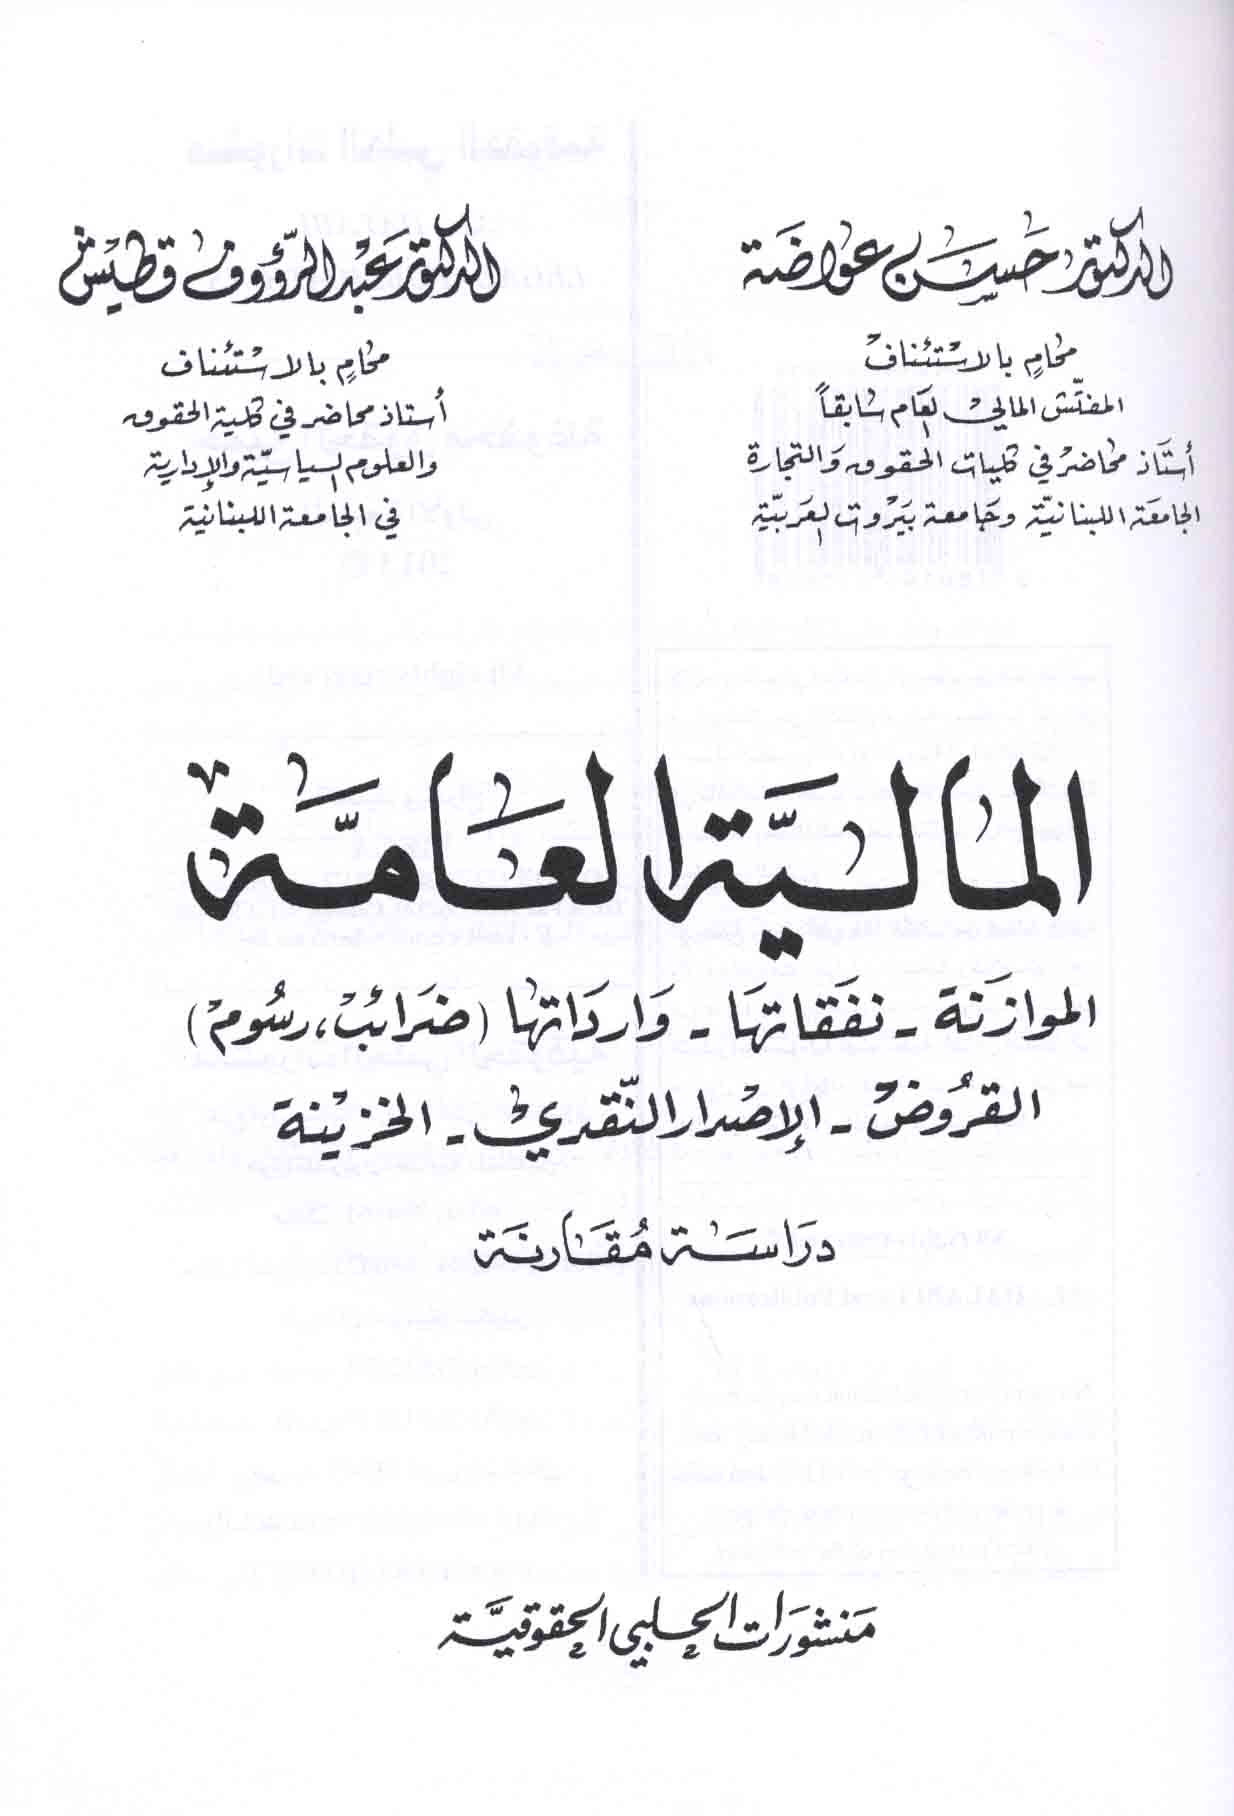 الدكتور حسن عواضة
محامٍ بالاستئناف
المفتّش المالي العام سابقاً
أستاذ محاضر في كليات الحقوق والتجارة
الجامعة اللبنانيّة وجامعة بيروت العربيّة
الدكتور عبد الرؤوف قطيش
محامٍ بالاستئناف
أستاذ محاضر في كلية الحقوق
والعلوم السياسيّة والإدارية
في الجامعة اللبنانية
الماليّة العامّة
الموازنة - نفقاتها - وارداتها (ضرائب، رسوم)
القروض - الإصدار النّقدي - الخزينة
دراسة مُقارنة
منشورات الحلبي الحقوقيّة